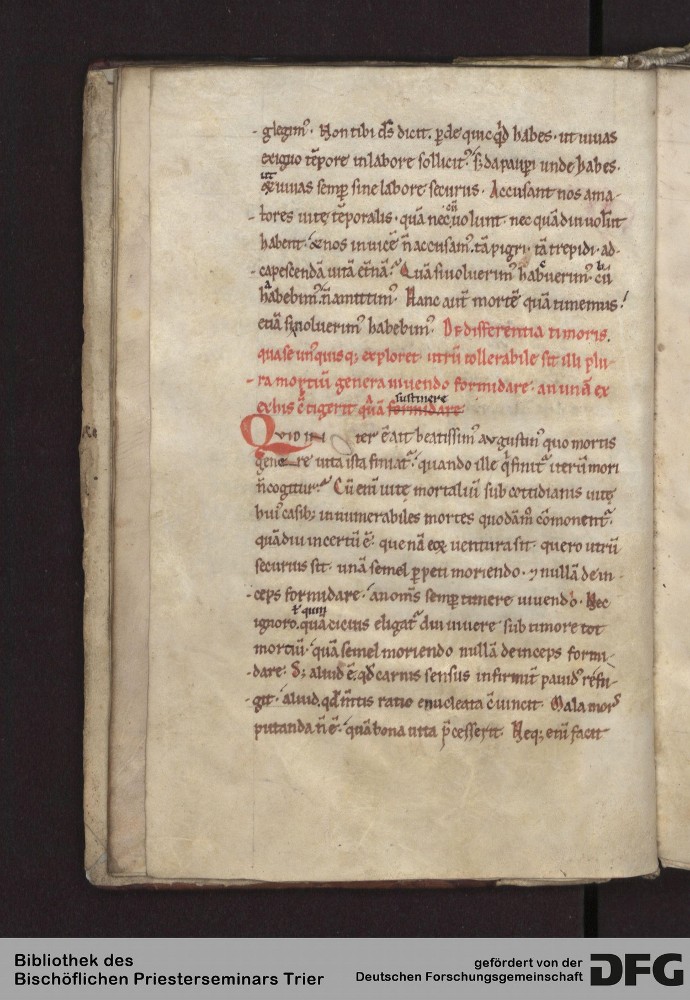 glegim᷒. Non tibi d̄s dicit. ꝑde quicq̄d habes. ut uiuas
exiguo tēpore in labore sollicit᷒. s; da pauꝑi unde habes.
ut
& uiuas semꝑ sine labore securus. Accusant nos ama-
tores uitę tēporalis. quā nec cū uolunt. nec quādiu uolūt
habent. & nos inuicē n̄ accusam᷒. tā pigri. tā trepidi. ad-
capescendā uitā et̄nā. Quā si uoluerim᷒ habuerim᷒. cū
habebim᷒. n̄ amittim᷒. Hanc aut̄ mortē quā timemus.
etiā si noluerim᷒ habebim᷒. De differentia timoris.
qua se un᷒quisq; exploret utrū tollerabile sit illi plu-
ra mortiū genera uiuendo formidare. an unā ex
sustinere
ex his c̄tigerit quā formidare
Quid in ter ē ait beatissim᷒ augustin᷒ quo mortis
gene re uita ista finiat᷒. quando ille q̄ finit᷒ iterū mori
n̄ cogitur. Cū eni uitę mortaliū sub cottidianis uitę
hui᷒ casib; innumerabiles mortes quodām̄ cōmonent᷒.
quādiu incertū ē. que nā eoꝝ uentura sit. quero utrū
securius sit unā semel ꝑpeti moriendo. ⁊ nullā dein-
ceps formidare. an om̄s semꝑ timere uiuendo. Nec
ignoro. quā citius eligat᷒ diu uiuere sub timore tot
mortiū. quā semel moriendo nullā deinceps formi-
dare. S; aliud ē. qd̄ carnis sensus infirmit᷒ pauid᷒ refu-
git. aliud. qd̄ m̄tis ratio enucleata c̄uincit. Mala mors
putanda n̄ ē. quā bona uita p̄cesserit. Neq; eni facit
Bibliothek des
Bischöflichen Priesterseminars Trier
gefördert von der
Deutschen Forschungsgemeinschaft
DFG